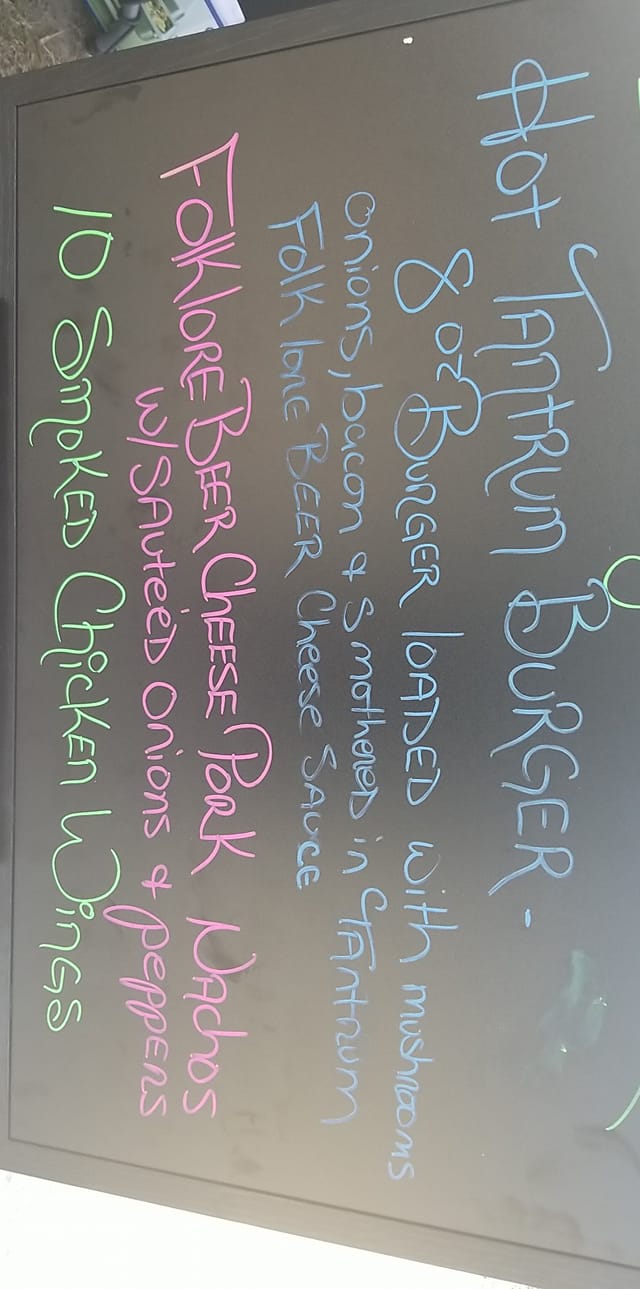 Hot TANTRUM BURGER -
8 oz BURGER LOADED with mushrooms
onions, bacon & Smothered in TANTRUM
Folklore BEER Cheese SAUCE
FOLKLORE BEER CHEESE PORK NACHOS
w/ SAUTEED Onions & PEPPERS
10 SMOKED CHICKEN WINGS